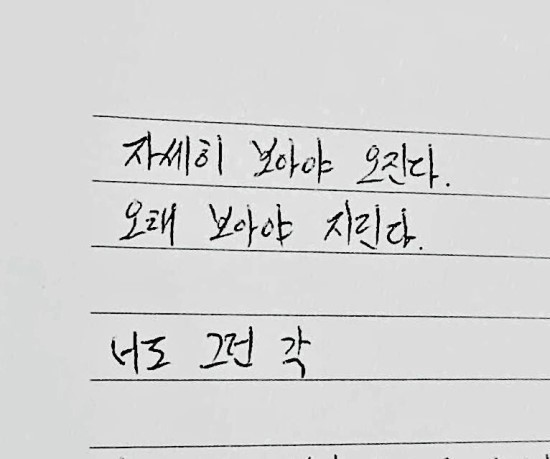 자세히 보아야 오진다.
오래 보아야 지린다.
너도 그런 각